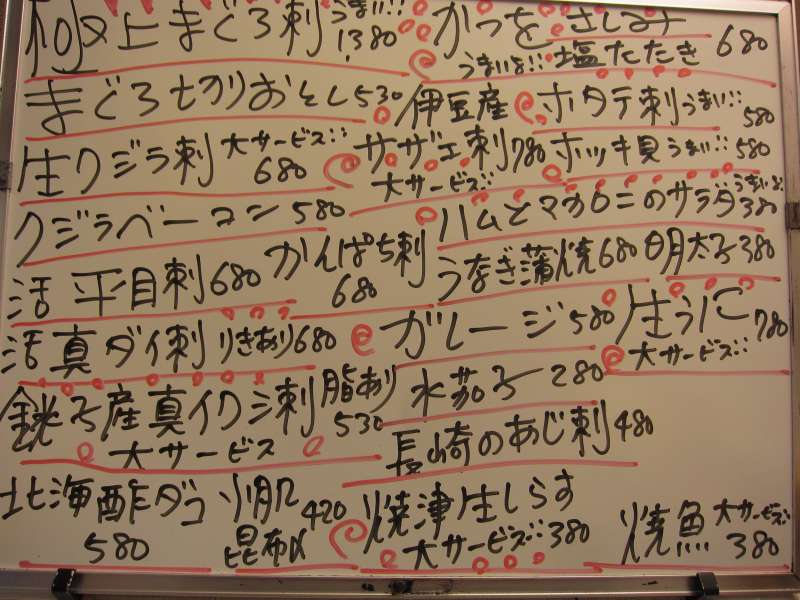 極上まぐろ刺 うまい!! 1380
かつをさしみ うまいよ!! 塩たたき 680
まぐろ切りおとし 530
伊豆産 サザエ刺 780 大サービス!!
ホタテ刺 うまい!! 580
生クジラ刺 大サービス!! 680
ホッキ貝 うまい!! 580
クジラベーコン 580
ハムとマカロニのサラダ うまいよ 380
活平目刺 680
かんぱち刺 680
うなぎ蒲焼 680
明太子 380
活真ダイ刺 りきあり 680
ガレージ 580
生うに 780 大サービス!!
銚子産真イワシ刺 脂あり 530 大サービス
水茄子 280
長崎のあじ刺 480
北海酢ダコ 580
小肌 420 昆布〆
焼津生しらす 大サービス!! 380
焼魚 大サービス!! 380